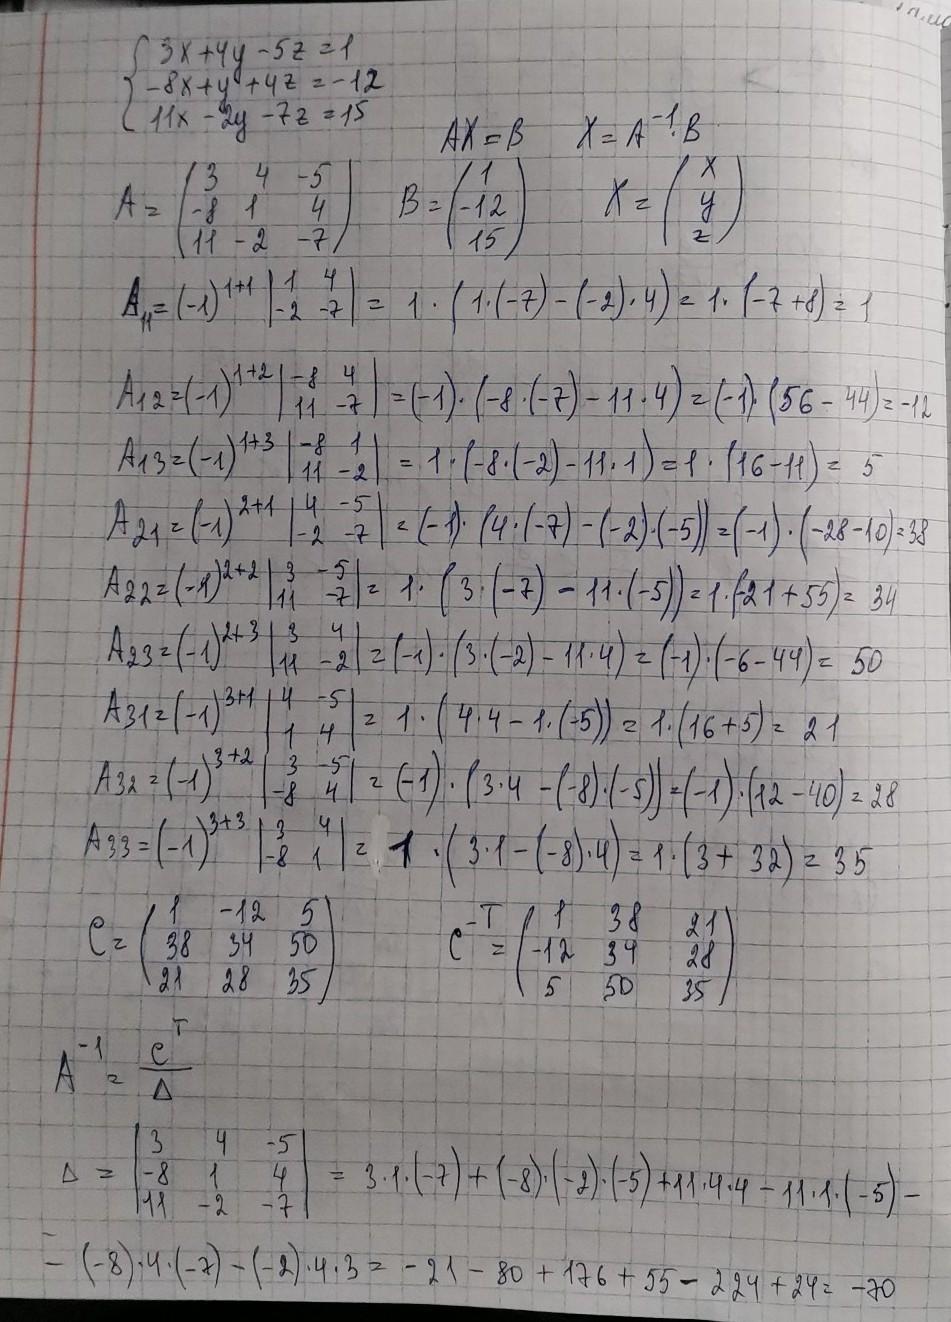 3x+4y-5z=1
-8x+y+4z=-12
11x-2y-7z=15
AX=B X=A⁻¹·B
A= (3 4 -5
-8 1 4
11 -2 -7)
B= (1
-12
15)
X= (x
y
z)
A₁₁=(-1)¹⁺¹ |1 4
-2 -7| = 1·(1·(-7)-(-2)·4)=1·(-7+8)=1
A₁₂=(-1)¹⁺² |-8 4
11 -7| =(-1)·(-8·(-7)-11·4)=(-1)·(56-44)=-12
A₁₃=(-1)¹⁺³ |-8 1
11 -2| =1·(-8·(-2)-11·1)=1·(16-11)=5
A₂₁=(-1)²⁺¹ |4 -5
-2 -7| =(-1)·(4·(-7)-(-2)·(-5))=(-1)·(-28-10)=38
A₂₂=(-1)²⁺² |3 -5
11 -7| =1·(3·(-7)-11·(-5))=1·(-21+55)=34
A₂₃=(-1)²⁺³ |3 4
11 -2| =(-1)·(3·(-2)-11·4)=(-1)·(-6-44)=50
A₃₁=(-1)³⁺¹ |4 -5
1 4| =1·(4·4-1·(-5))=1·(16+5)=21
A₃₂=(-1)³⁺² |3 -5
-8 4| =(-1)·(3·4-(-8)·(-5))=(-1)·(12-40)=28
A₃₃=(-1)³⁺³ |3 4
-8 1| =1·(3·1-(-8)·4)=1·(3+32)=35
C= (1 -12 5
38 34 50
21 28 35)
C⁻ᵀ= (1 38 21
-12 34 28
5 50 35)
A⁻¹= Cᵀ
Δ
Δ = |3 4 -5
-8 1 4
11 -2 -7| = 3·1·(-7)+(-8)·(-2)·(-5)+11·4·4-11·1·(-5)-
-(-8)·4·(-7)-(-2)·4·3=-21-80+176+55-224+24=-70